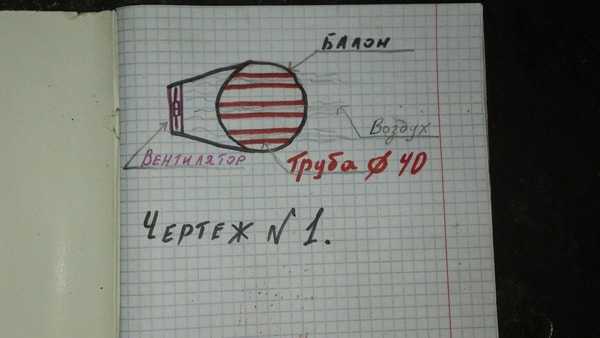 БАЛОН
Воздух
ВЕНТИЛЯТОР
Труба ⌀ 40
ЧЕРТЕЖ № 1.